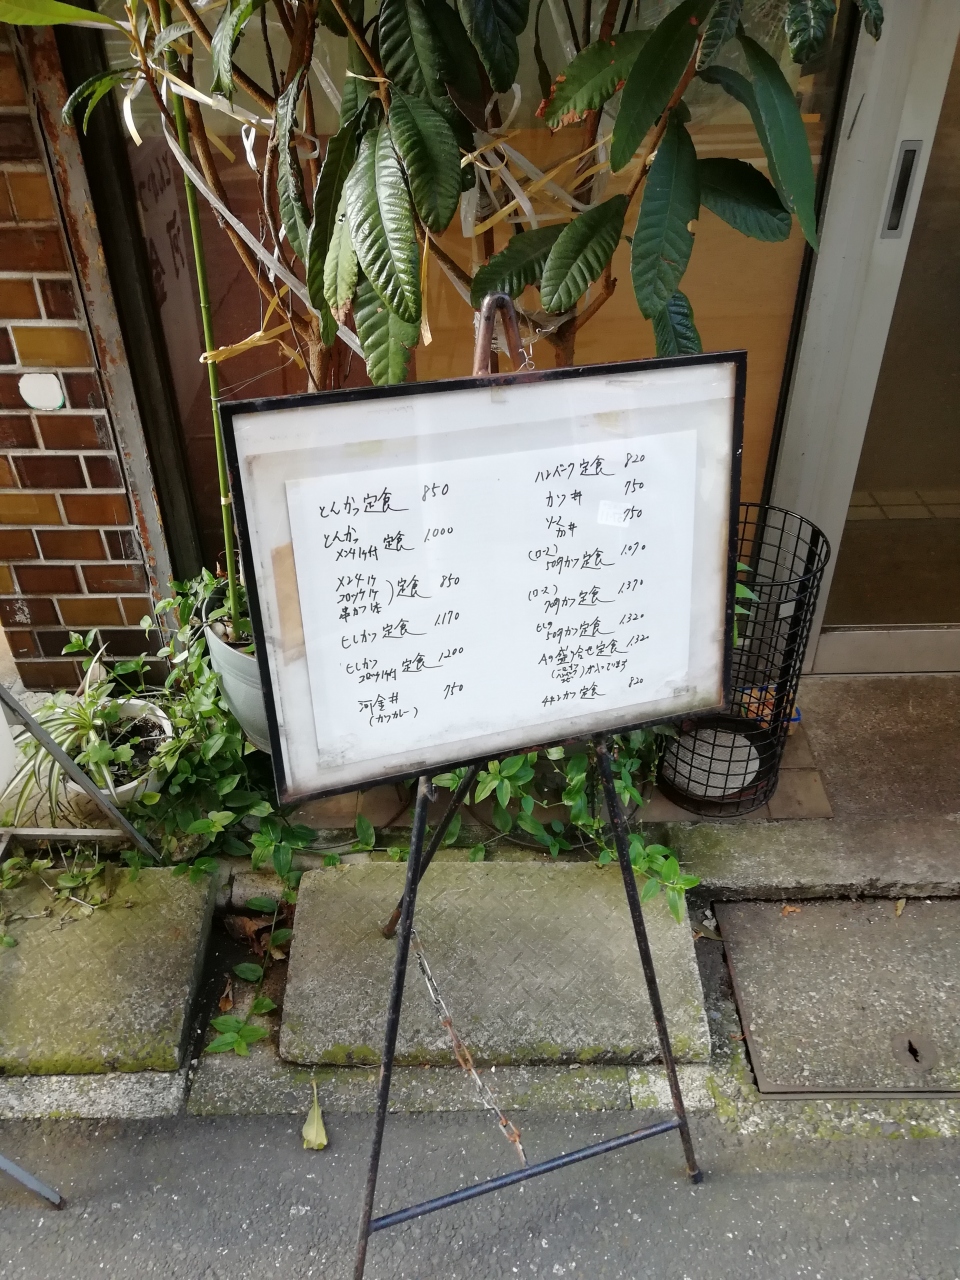 とんかつ定食 850
とんかつ
メンチ付 定食 1.000
メンチ
コロッケ
串カツ ) 定食 850
ヒレカツ定食 1.170
ヒレカツ
コロッケ付 定食 1.200
河金丼 750
(カツカレー)
ハンバーグ定食 820
カツ丼 750
ソース
カツ丼 750
(ロース)
50匁カツ定食 1.070
(ロース)
定食 1.370
ヒレ
50匁カツ定食 1.320
盛り合せ定食 1.320
が入っています
チキンカツ定食 820